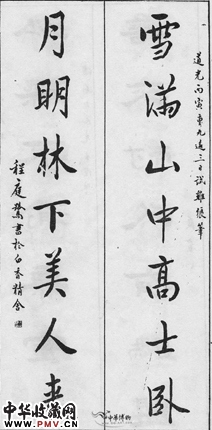 道光丙寅重九後三日試雞狼筆
雪滿山中高士卧
月明林下美人来
程庭鷺書於白香精舍
中华收藏网
www.PMV.CN
中华博物